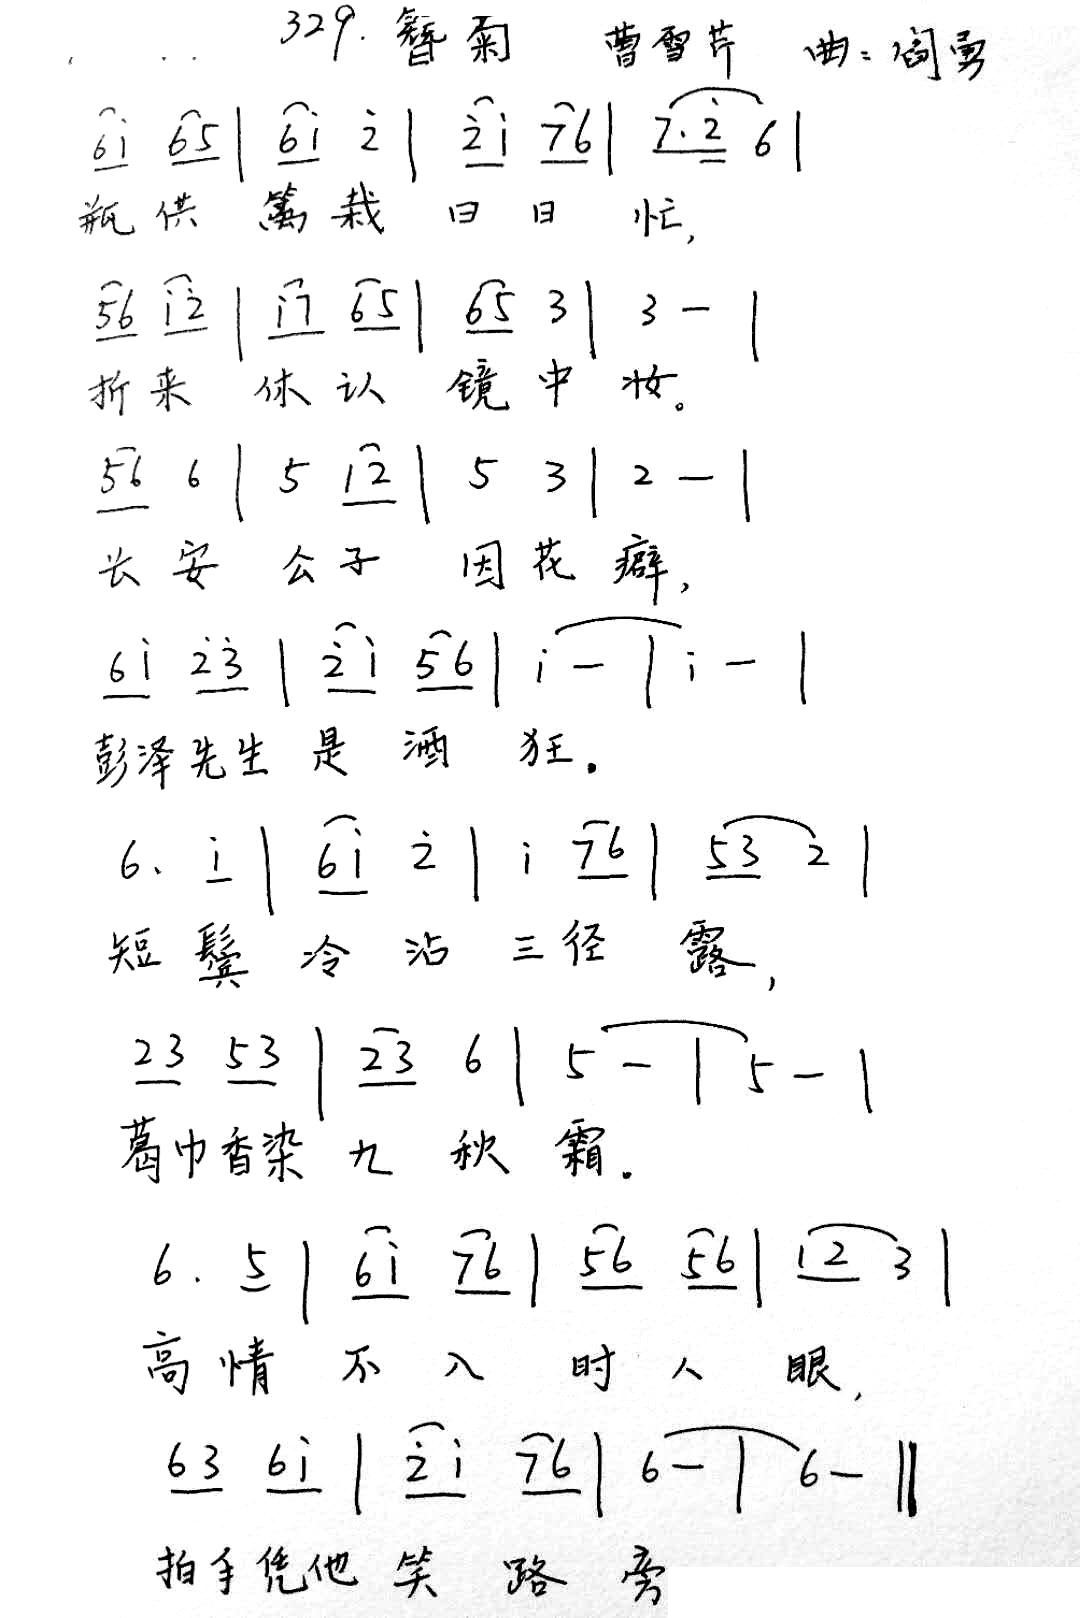 329. 簪菊 曹雪芹 曲:阎勇
6i 65 | 6i 2̇ | 2̇i 76 | 7.2̇ 6 |
瓶供 篱栽 日日 忙,
56 i2̇ | i7 65 | 65 3 | 3 - |
折来 休认 镜中 妆。
56 6 | 5 12 | 5 3 | 2 - |
长安 公子 因花癖,
6i 2̇3̇ | 2̇i 56 | i - | i - |
彭泽先生 是 酒 狂.
6. i | 6i 2̇ | i 76 | 53 2 |
短鬓 冷 沾 三径 露,
23 53 | 23 6 | 5 - | 5 - |
葛巾香染 九 秋 霜.
6. 5 | 6i 76 | 56 56 | 12 3 |
高情 不入 时人 眼,
63 6i | 2̇i 76 | 6 - | 6 - ‖
拍手凭他 笑 路 旁